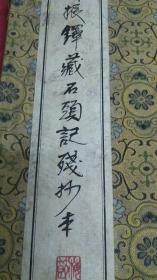 振鐸藏石頭記殘抄本